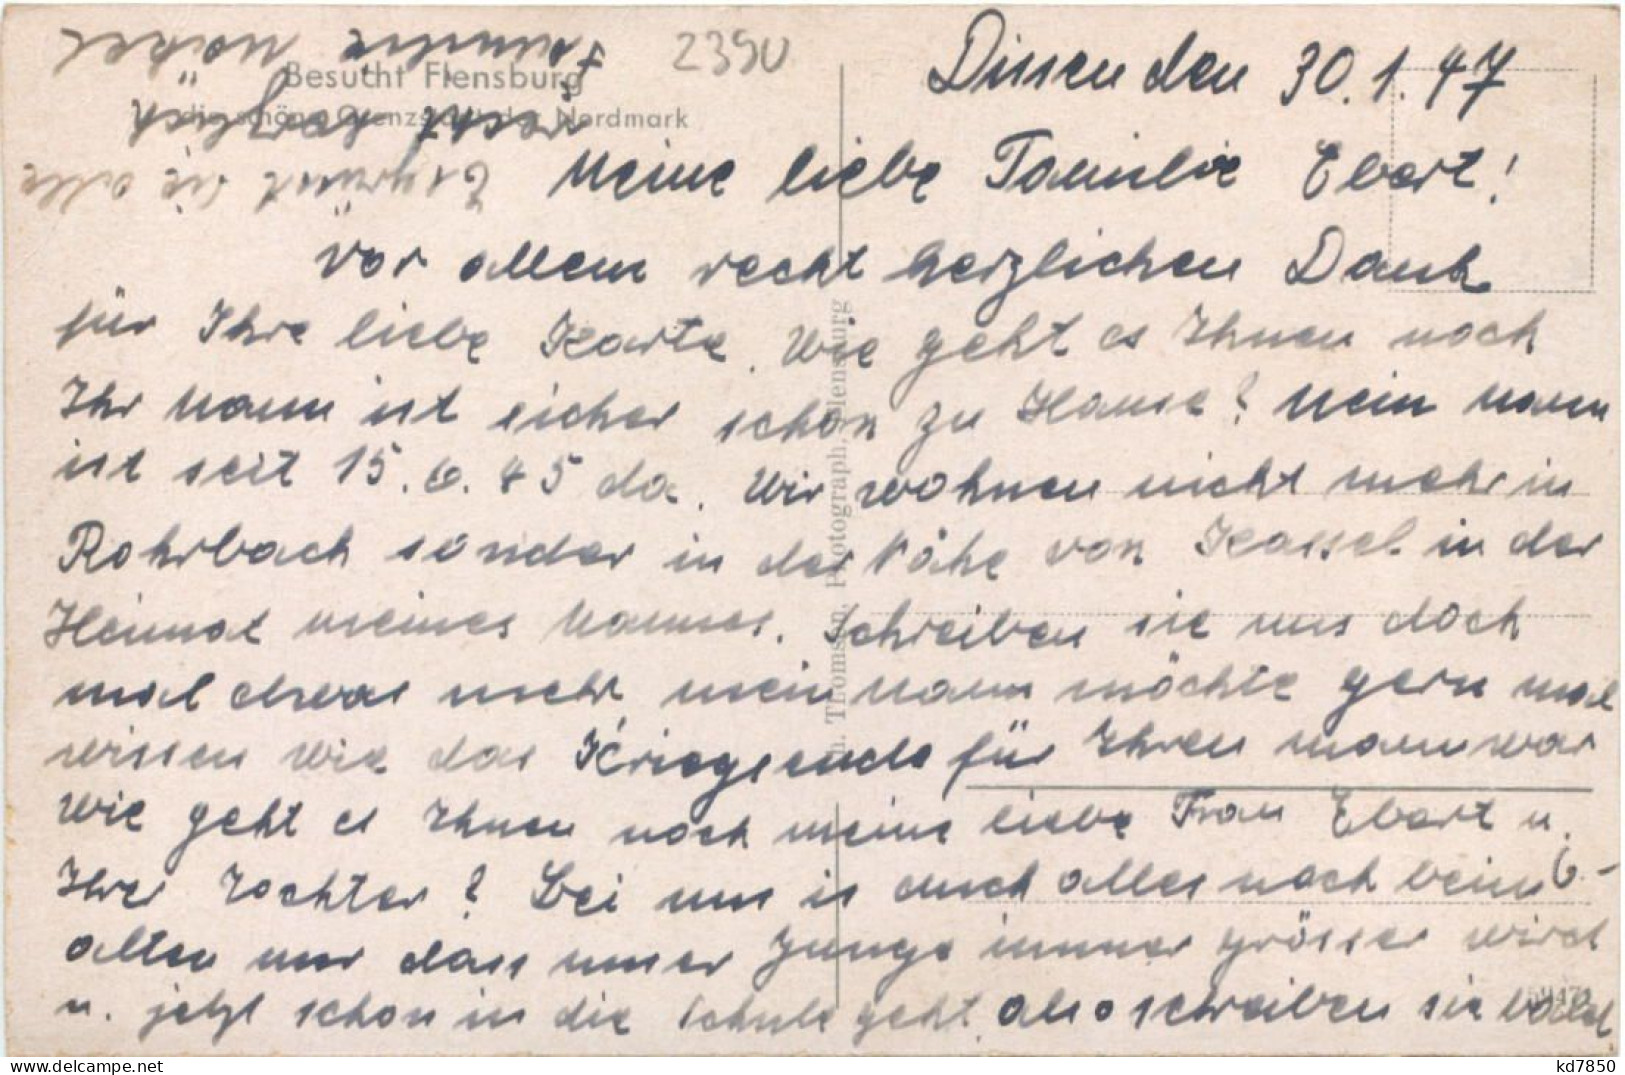 2390
Dissen den 30.1.47
Meine liebe Familie Ebert!
Vor allem recht herzlichen Dank
für Ihre liebe Karte. Wie geht es Ihnen noch
Ihr Mann ist sicher schon zu Hause? Mein Mann
ist seit 15.6.45 da. Wir wohnen nicht mehr in
Rohrbach sonder in der Nähe von Kassel in der
Heimat meines Mannes. Schreiben sie uns doch
mal etwas mehr mein Mann möchte gern mal
wissen wie das Kriegsende für Ihren Mann war
wie geht es Ihnen noch meine liebe Frau Ebert u.
Ihrer Tochter? Bei uns is auch alles noch beim
alten nur dass unser Junge immer grösser wird
u. jetzt schon in die Schule geht also schreiben sie bald
Es grüsst sie alle
recht herzlich
Familie
Besucht Flensburg
die schöne Grenzstadt der Nordmark
Th. Thomsen, Photograph, Flensburg
kd7850